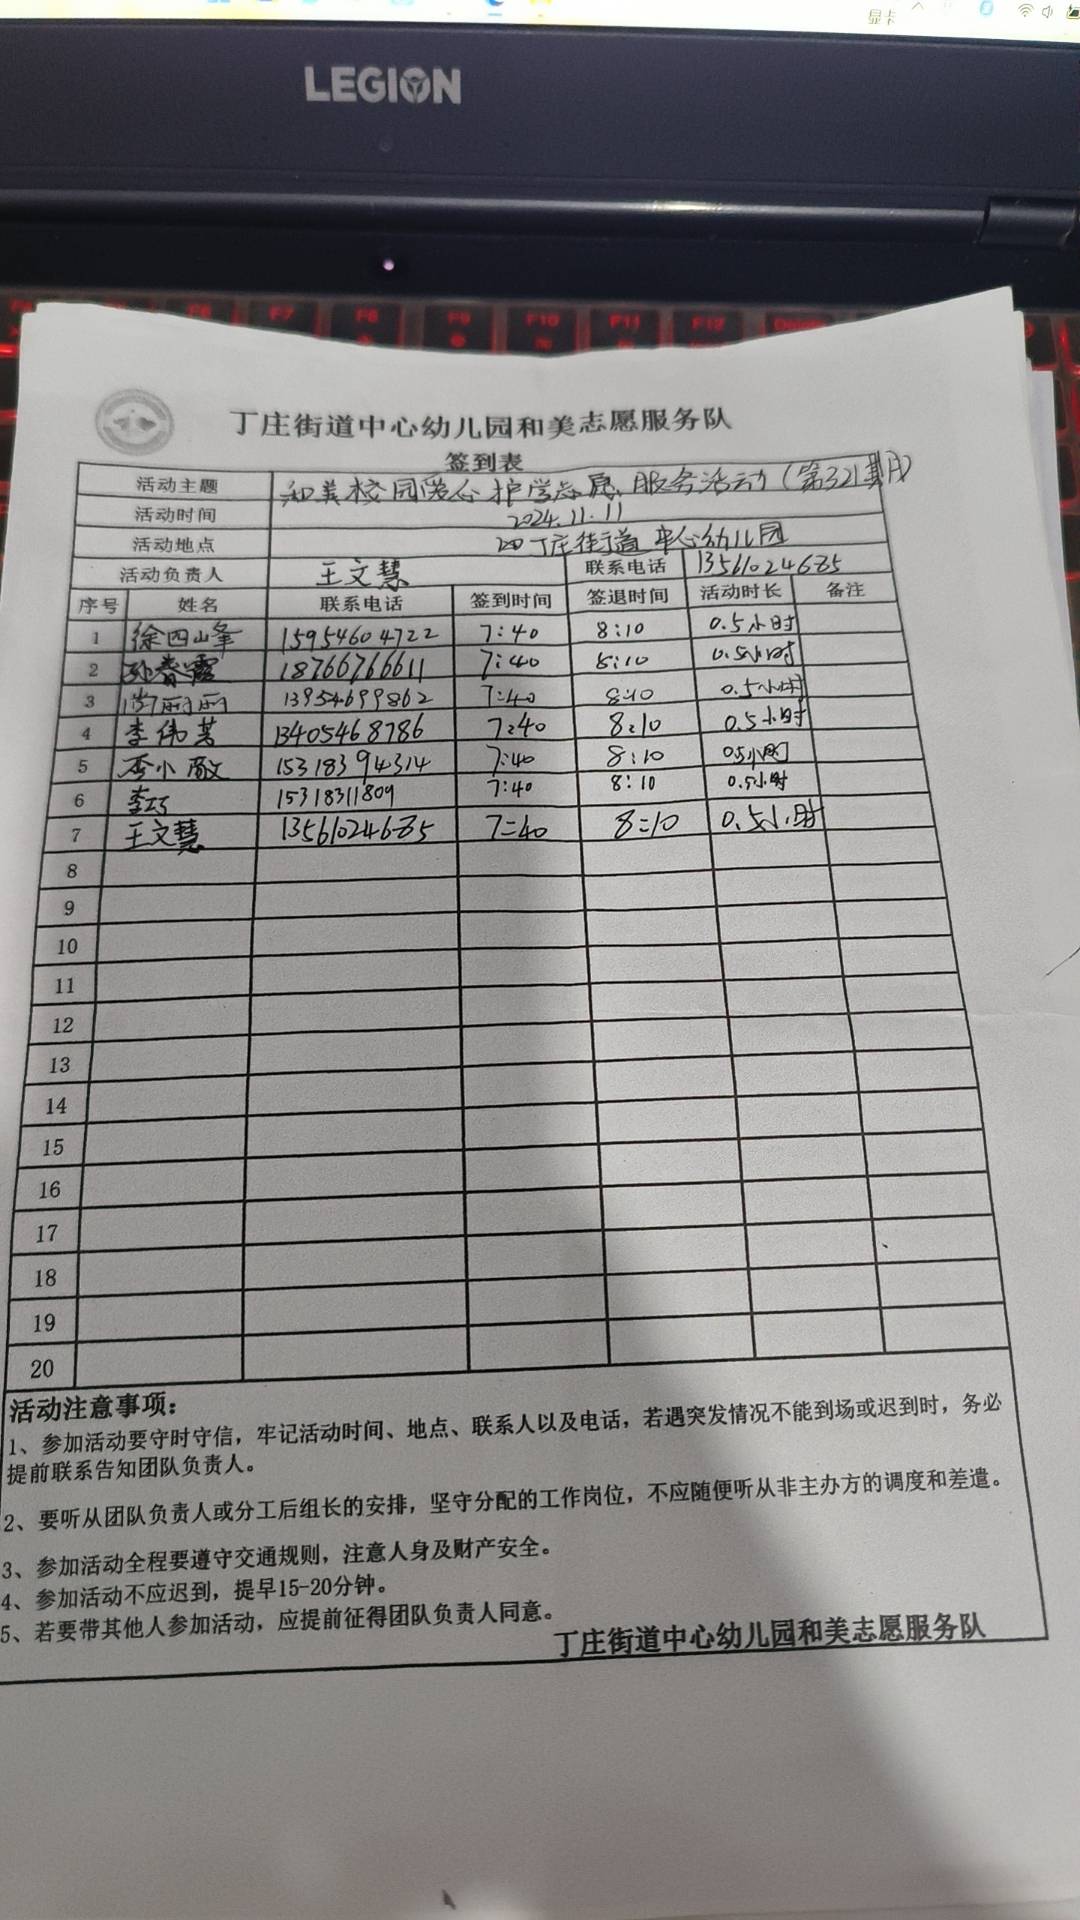 显卡
LEGION
F6 F7 F8 F9 F10 F11 F12
丁庄街道中心幼儿园和美志愿服务队
签到表
活动主题 和美校园爱心护学志愿服务活动（第321期）
活动时间 2024.11.11
活动地点 丁庄街道中心幼儿园
活动负责人 王文慧 联系电话 13561024685
序号 姓名 联系电话 签到时间 签退时间 活动时长 备注
1 徐四峰 15954604722 7:40 8:10 0.5小时
2 孙春霞 18766766611 7:40 8:10 0.5小时
3 尚丽丽 13954699862 7:40 8:10 0.5小时
4 李伟 13405468786 7:40 8:10 0.5小时
5 李小敏 15318394314 7:40 8:10 0.5小时
6 李巧 15318311809 7:40 8:10 0.5小时
7 王文慧 13561024685 7:40 8:10 0.5小时
8
9
10
11
12
13
14
15
16
17
18
19
20
活动注意事项：
1、参加活动要守时守信，牢记活动时间、地点、联系人以及电话，若遇突发情况不能到场或迟到时，务必
提前联系告知团队负责人。
2、要听从团队负责人或分工后组长的安排，坚守分配的工作岗位，不应随便听从非主办方的调度和差遣。
3、参加活动全程要遵守交通规则，注意人身及财产安全。
4、参加活动不应迟到，提早15-20分钟。
5、若要带其他人参加活动，应提前征得团队负责人同意。
丁庄街道中心幼儿园和美志愿服务队